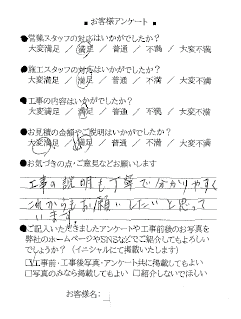 ■ お客様アンケート ■
●営業スタッフの対応はいかがでしたか?
大変満足 / 満足 / 普通 / 不満 / 大変不満
●施工スタッフの対応はいかがでしたか?
大変満足 / 満足 / 普通 / 不満 / 大変不満
●工事の内容はいかがですか?
大変満足 / 満足 / 普通 / 不満 / 大変不満
●お見積の金額やご説明はいかがでしたか?
大変満足 / 満足 / 普通 / 不満 / 大変不満
●お気づきの点・ご意見などお願いします
工事の説明も丁寧で分かりやすく
これからもお願いしたいと思って
います。
●ご記入いただきましたアンケートや工事前後のお写真を
弊社のホームページやSNSなどでご紹介してもよろしい
でしょうか? (イニシャルにて掲載いたします)
☑工事前・工事後写真・アンケート共に掲載してもよい
□写真のみなら掲載してもよい □紹介しないでほしい
お客様名: